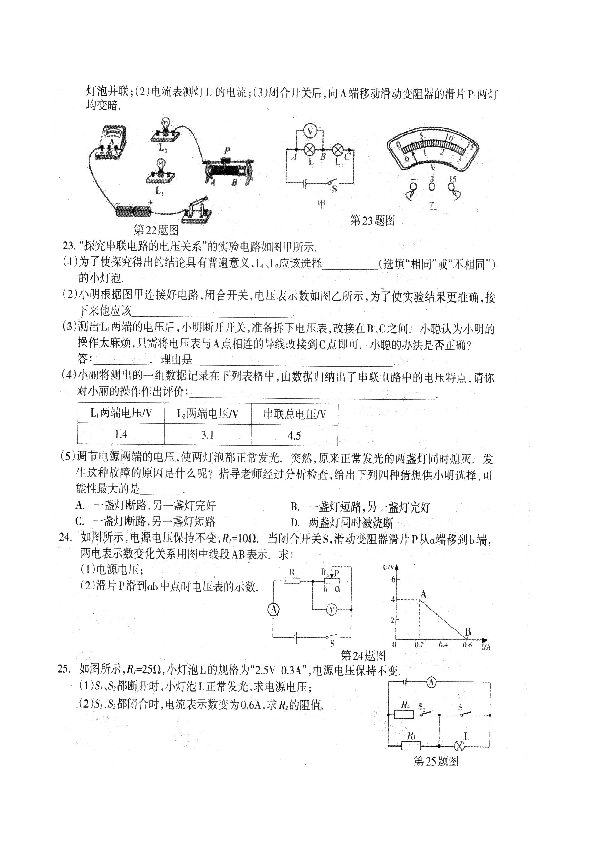 灯泡并联;(2)电流表测灯L 的电流;(3)闭合开关后,向A端移动滑动变阻器的滑片P,两灯
均变暗.
L₂
P
L₁
A B
第22题图
V
A L B L C
S
甲
0 5 10 15
0 1 2 3
V
- 3 15
乙
第23题图
23. “探究串联电路的电压关系”的实验电路如图甲所示.
(1)为了使探究得出的结论具有普遍意义,L₁、L₂应该选择 (选填“相同”或“不相同”)
的小灯泡.
(2)小明根据图甲连接好电路,闭合开关,电压表示数如图乙所示,为了使实验结果更准确,接
下来他应该
(3)测出L₁两端的电压后,小明断开开关,准备拆下电压表,改接在B、C之间. 小聪认为小明的
操作太麻烦,只需将电压表与A点相连的导线改接到C点即可. 小聪的办法是否正确?
答: . 理由是
(4)小丽将测出的一组数据记录在下列表格中,由数据归纳出了串联电路中的电压特点. 请你
对小丽的操作作出评价:
L₁两端电压/V L₂两端电压/V 串联总电压/V
1.4 3.1 4.5
(5)调节电源两端的电压,使两灯泡都正常发光. 突然,原来正常发光的两盏灯同时熄灭. 发
生这种故障的原因是什么呢? 指导老师经过分析检查,给出下列四种猜想供小明选择,可
能性最大的是
A. 一盏灯断路,另一盏灯完好 B. 一盏灯短路,另一盏灯完好
C. 一盏灯断路,另一盏灯短路 D. 两盏灯同时被烧断
24. 如图所示,电源电压保持不变,R₁=10Ω. 当闭合开关S,滑动变阻器滑片P从a端移到b端,
两电表示数变化关系用图中线段AB表示. 求:
(1)电源电压;
(2)滑片P滑到ab中点时电压表的示数.
R P
b a
A V
S
U/V
6
4
2
A
B
0 0.2 0.4 0.6 I/A
第24题图
25. 如图所示,R₁=25Ω,小灯泡L的规格为“2.5V 0.3A”,电源电压保持不变.
(1)S₁、S₂都断开时,小灯泡L正常发光,求电源电压;
(2)S₁、S₂都闭合时,电流表示数变为0.6A,求R₂的阻值.
A
R₂ S S
R₁ L
第25题图